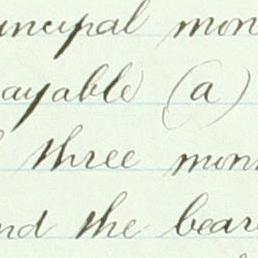 incipal mon
ayable (a)
three mon
nd the bear